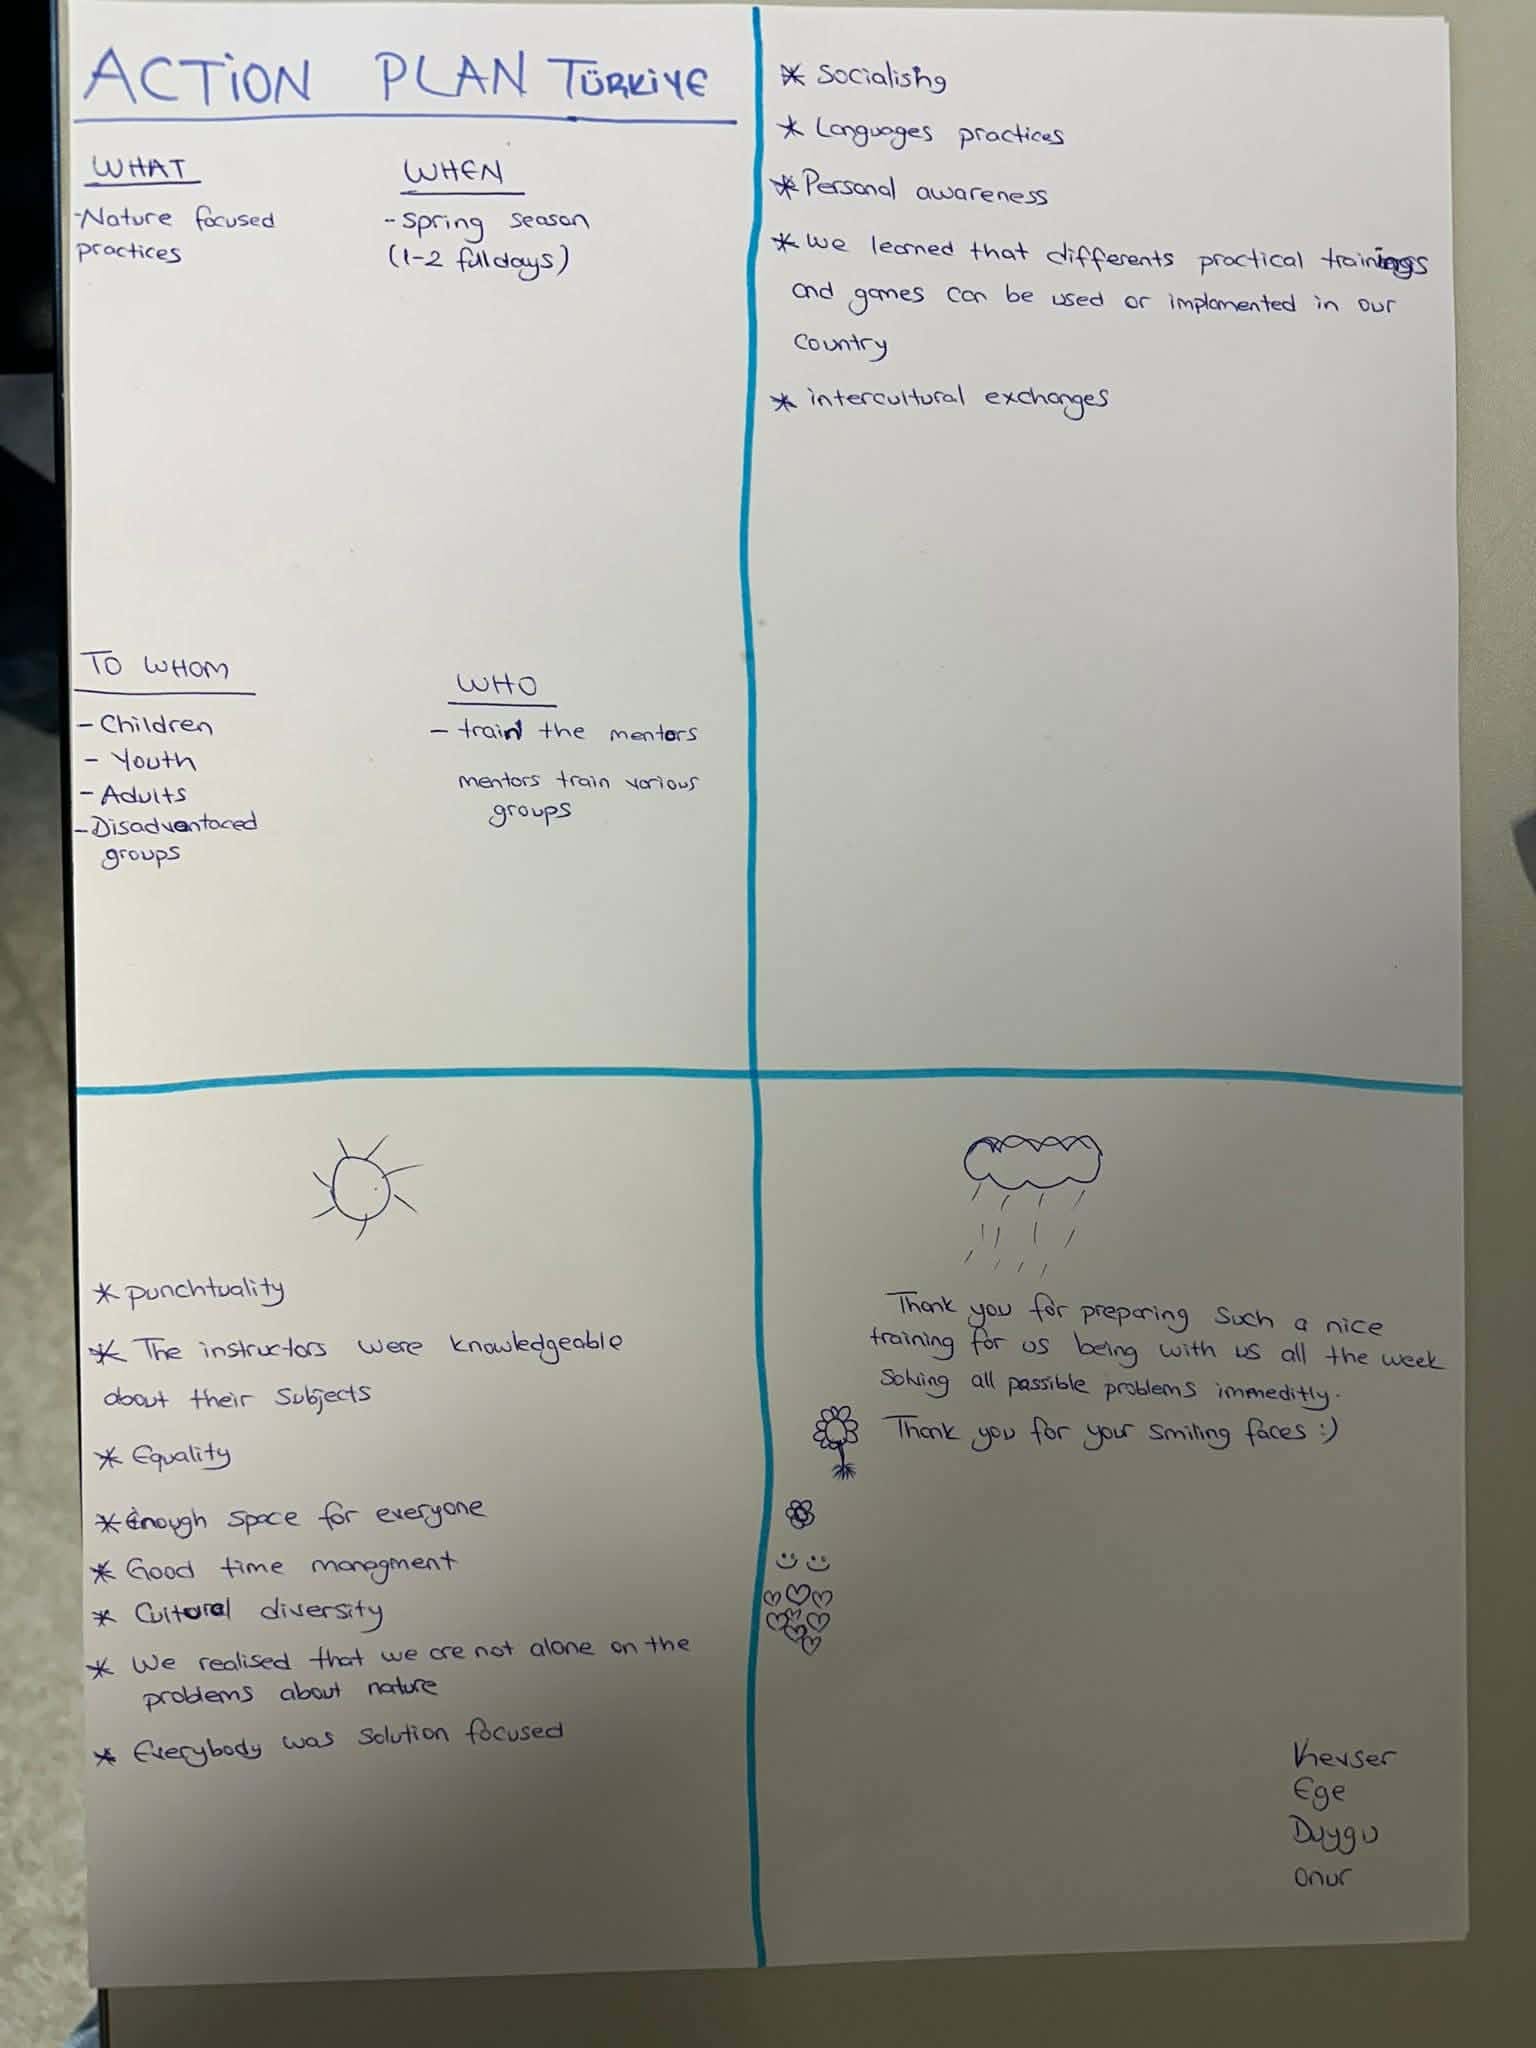 ACTION PLAN TÜRKİYE
WHAT
-Nature focused
practices
WHEN
-Spring season
(1-2 full days)
TO WHOM
- Children
- Youth
- Adults
- Disadventaced
groups
WHO
- train the mentors
mentors train various
groups
* Socialising
* Languages practices
* Personal awareness
* We learned that differents practical trainings
and games can be used or implamented in our
country
* intercultural exchanges
* punchtuality
* The instructors were knowledgeable
about their subjects
* Equality
* Enough space for everyone
* Good time managment
* Cultural diversity
* We realised that we are not alone on the
problems about nature
* Everybody was solution focused
Thank you for preparing such a nice
training for us being with us all the week
solving all passible problems immeditly.
Thank you for your smiling faces :)
Kevser
Ege
Duygu
Onur